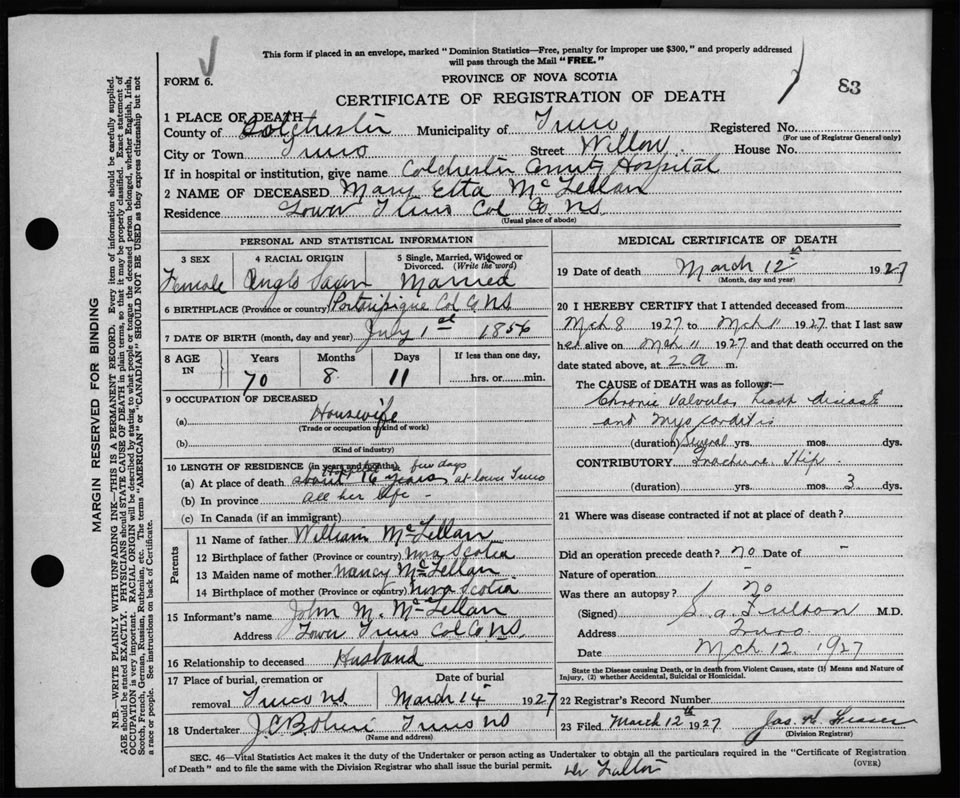 This form if placed in an envelope, marked "Dominion Statistics—Free, penalty for improper use $300," and properly addressed
will pass through the Mail "FREE."
FORM 6.
PROVINCE OF NOVA SCOTIA
83
CERTIFICATE OF REGISTRATION OF DEATH
1 PLACE OF DEATH
County of Colchester Municipality of Truro Registered No.
(For use of Registrar General only)
City or Town Truro Street Willow. House No.
If in hospital or institution, give name Colchester County Hospital
2 NAME OF DECEASED Mary Etta McLellan
Residence Lower Truro Col Co. NS.
(Usual place of abode)
PERSONAL AND STATISTICAL INFORMATION
3 SEX 4 RACIAL ORIGIN 5 Single, Married, Widowed or Divorced. (Write the word)
Female Anglo Saxon Married
6 BIRTHPLACE (Province or country) Portapique Col Co NS
7 DATE OF BIRTH (month, day and year) July 1st 1856
8 AGE IN Years Months Days If less than one day,
70 8 11 hrs. or min.
9 OCCUPATION OF DECEASED
(a) Housewife
(Trade or occupation or kind of work)
(b)
(Kind of industry)
10 LENGTH OF RESIDENCE (in years and months)
Hospital a few days
(a) At place of death about 16 years at lower Truro
(b) In province all her life -
(c) In Canada (if an immigrant)
Parents
11 Name of father William McLellan
12 Birthplace of father (Province or country) Nova Scotia
13 Maiden name of mother Nancy McLellan
14 Birthplace of mother (Province or country) Nova Scotia
15 Informant's name John M. McLellan
Address Lower Truro Col Co. NS.
16 Relationship to deceased Husband
17 Place of burial, cremation or Date of burial
removal Truro NS. March 14 1927
18 Undertaker J.C. Truro NS
(Name and address)
MEDICAL CERTIFICATE OF DEATH
19 Date of death March 12th 1927
(Month, day and year)
20 I HEREBY CERTIFY that I attended deceased from
Mch 8 1927 to Mch 11 1927 that I last saw
her alive on Mch 11 1927 and that death occurred on the
date stated above, at 2 a m.
The CAUSE OF DEATH was as follows:—
Chronic valvular heart disease
and myocarditis
(duration) Several yrs. mos. dys.
CONTRIBUTORY Fracture Hip.
(duration) yrs. mos. 3 dys.
21 Where was disease contracted if not at place of death?
Did an operation precede death? no Date of -
Nature of operation -
Was there an autopsy? no
(Signed) S. A. Fulton M.D.
Address Truro.
Date Mch 12. 1927
State the Disease causing Death, or in death from Violent Causes, state (1) Means and Nature of
Injury, (2) whether Accidental, Suicidal or Homicidal.
22 Registrar's Record Number
23 Filed March 12th 1927 Jas. H.
(Division Registrar)
SEC. 46—Vital Statistics Act makes it the duty of the Undertaker or person acting as Undertaker to obtain all the particulars required in the "Certificate of Registration
of Death" and to file the same with the Division Registrar who shall issue the burial permit.
(OVER)
Dr Fulton
MARGIN RESERVED FOR BINDING
N.B.—WRITE PLAINLY WITH UNFADING INK—THIS IS A PERMANENT RECORD. Every item of information should be carefully supplied.
AGE should be stated EXACTLY. PHYSICIANS should STATE CAUSE OF DEATH in plain terms, so that it may be properly classified. Exact statement of
OCCUPATION is very important. RACIAL ORIGIN will be described by stating to what people or tongue the deceased person belonged, whether English, Irish,
Scotch, French, German, Russian, Ruthenian, etc. The terms "AMERICAN" or "CANADIAN" SHOULD NOT BE USED as they express citizenship but not
a race or people. See instructions on back of Certificate.